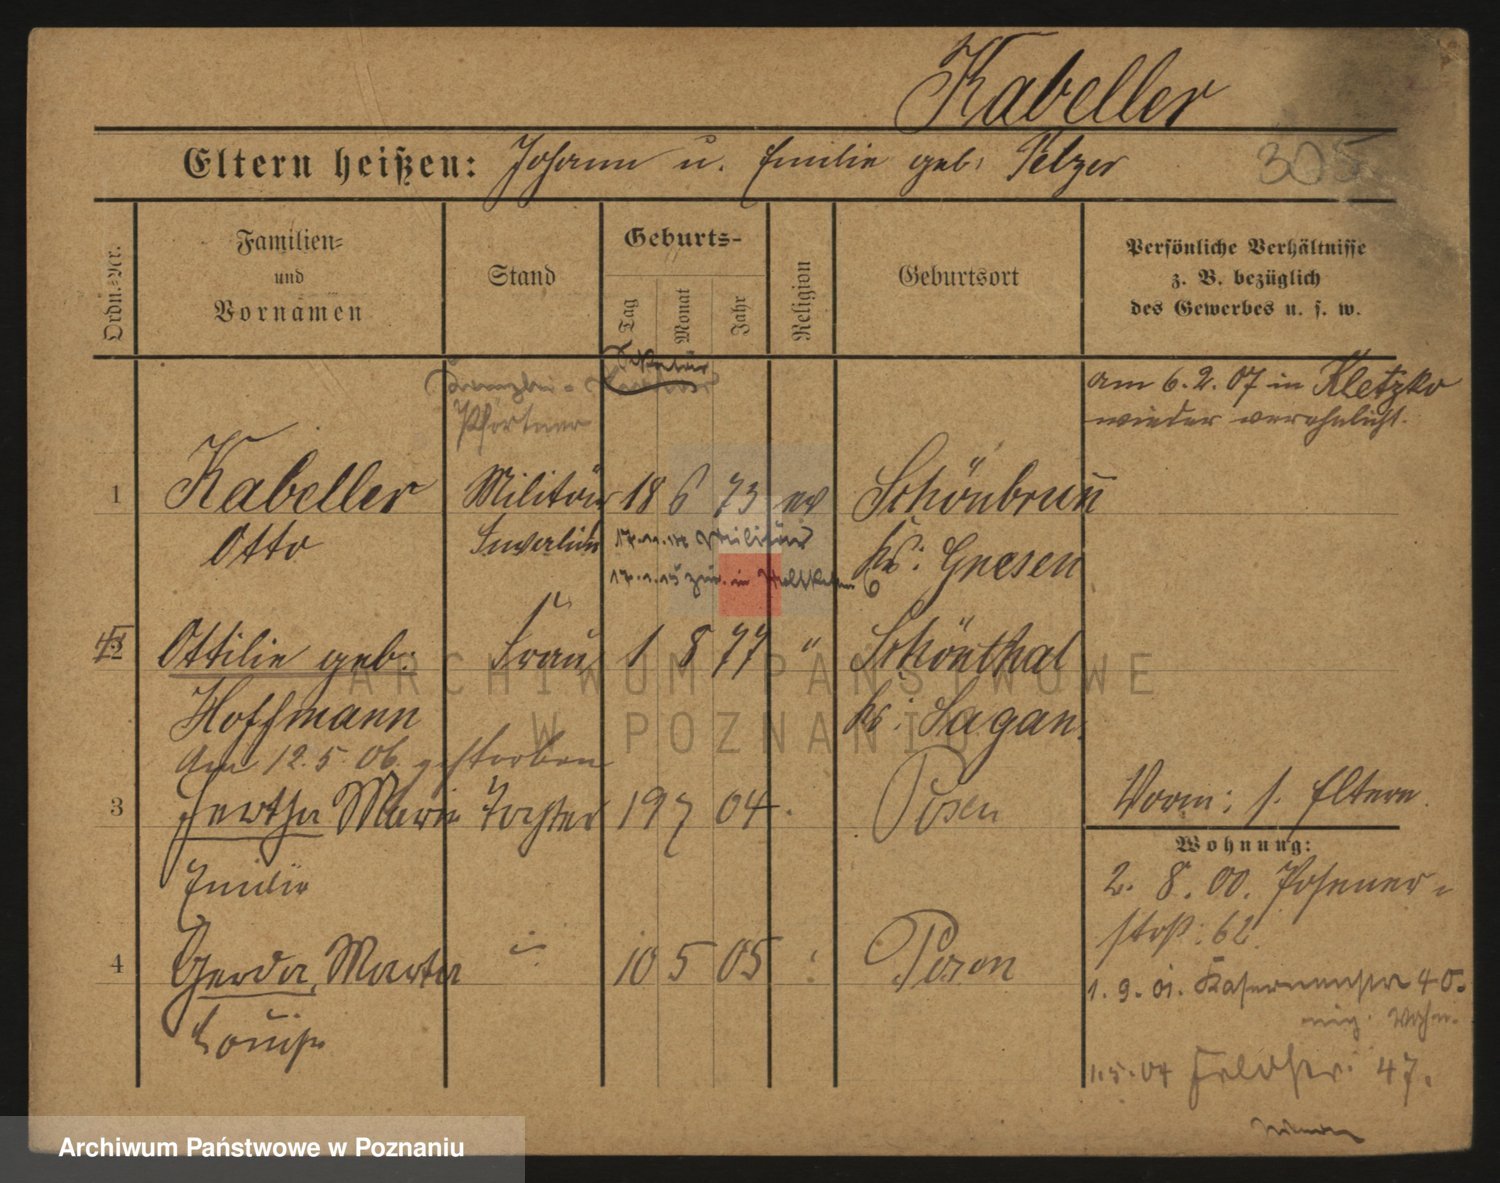 Kabeller
Eltern heißen: Johann u. Emilie geb. Pelzer
305
Ordn.-Nr.
Familien-
und
Vornamen
Stand
Geburts-
Tag
Monat
Jahr
Religion
Geburtsort
Persönliche Verhältnisse
z. B. bezüglich
des Gewerbes u. s. w.
am 6.2.07 in Kletzko
wieder verehelicht.
Pförtner
1 Kabeller Militär 18 6 73 ev Schönbrun
Otto Invalide 17.11.14 Militär
Kr: Gnesen
17.1.15 zur. in
2 Ottilie geb: Frau 1 8 77 " Schönthal
Hoffmann Kr: Sagan.
Am 12.5.06. gestorben
3 Hertha Marie Tochter 19 7 04 Posen
Emilie
Vorm: s. Eltern.
Wohnung:
2. 8. 00. Posener-
straß: 62.
4 Gerda, Marta 10 5 05 Posen
Louise
1. 9. 01. Kasernenstr 40.
eig. Wohn.
1.5.04 Feldstr. 47.
ARCHIWUM PAŃSTWOWE
W POZNANIU
Archiwum Państwowe w Poznaniu